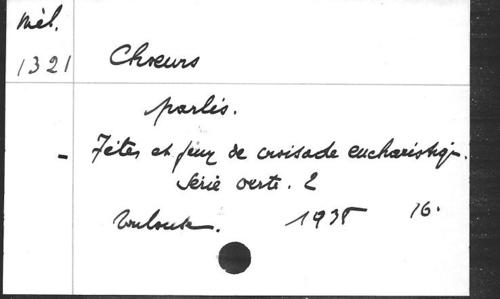 Mél.
1321
Chœurs
parlés.
- Fêtes et jeux de croisade eucharistiq.
Série verte. 2
Toulouse. 1938 16.